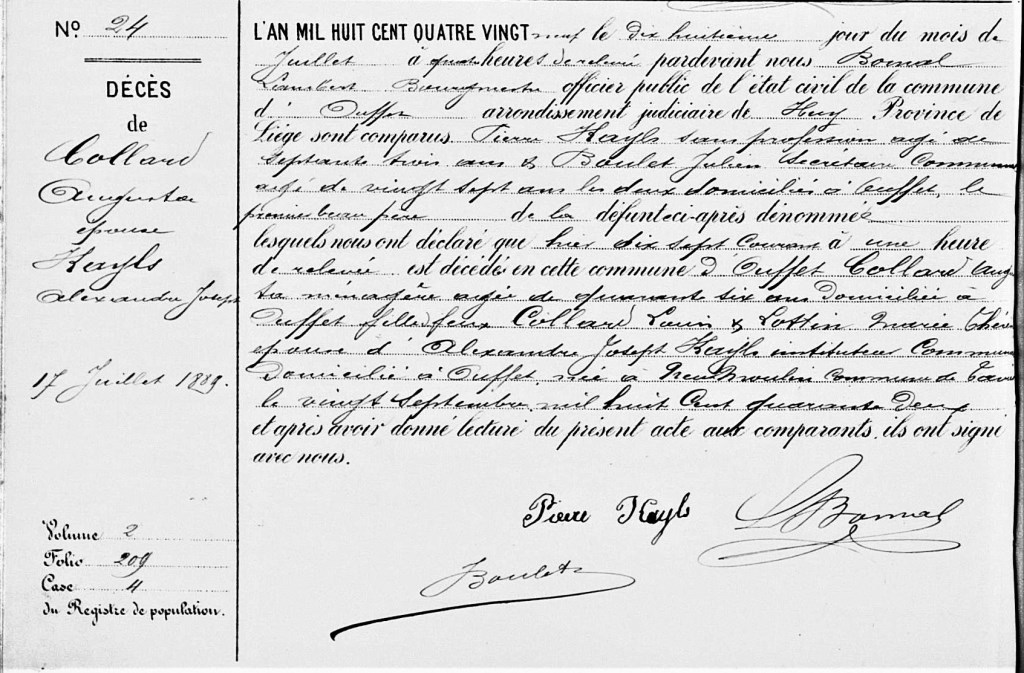 Nº 24
DÉCÈS
de
Collard
Augusta
épouse
Kayls
Alexandre Joseph
17 Juillet 1889.
Volume 2
Folio 209
Case 4
du Registre de population.
L'AN MIL HUIT CENT QUATRE VINGT neuf le dix huitième jour du mois de
Juillet à quatre heures de relevée pardevant nous Bomal
Lambert Bourgmestre officier public de l'état civil de la commune
d' Ouffet arrondissement judiciaire de Huy Province de
Liège sont comparus. Pierre Kayls sans profession agé de
septante trois ans & Boulet Julien Secrétaire Communal
agé de vingt sept ans les deux domiciliés à Ouffet, le
premier beau père de la défunte ci-après dénommée
lesquels nous ont déclaré que hier dix sept courant à une heure
de relevée est décédés en cette commune d' Ouffet Collard Augus
ta ménagère agée de quarante six ans domiciliée à
Ouffet fille de feux Collard Louis & Lottin Marie Thérè
épouse d' Alexandre Joseph Kayls instituteur Communal
Domicilié à Ouffet, née à Neumoulin commune de
le vingt Septembre mil huit cent quarante deux
et après avoir donné lecture du présent acte aux comparants, ils ont signé
avec nous.
Pierre Kayls
L Bomal
Boulet